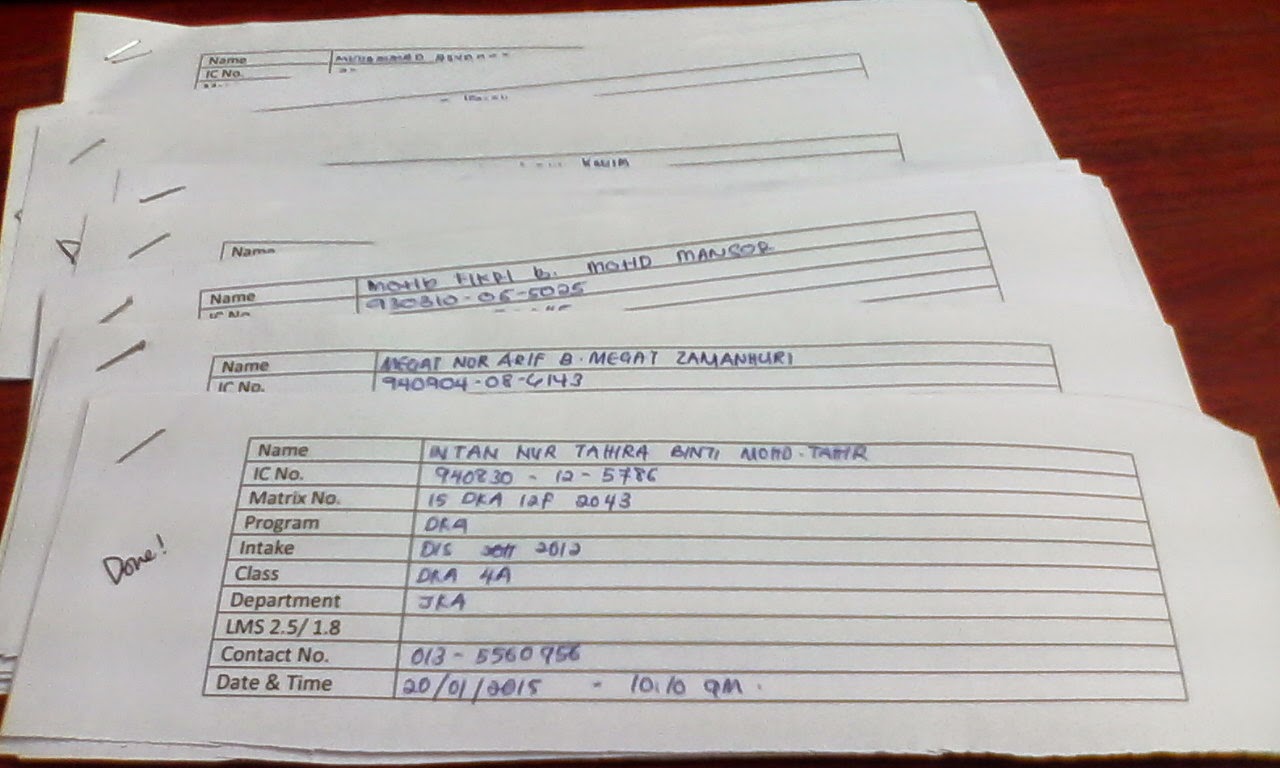 Name
IC No.
KALIM
Name
Name MOHD FIKRI B. MOHD MANSOR
930310-06-5025
IC No
Name MEGAT NOR ARIF B. MEGAT ZAMANHURI
IC No. 940904-08-6143
Name INTAN NUR TAHIRA BINTI MOHD. TAHIR
IC No. 940830 - 12 - 5786
Matrix No. 15 DKA 12F 2043
Program DKA
Done! Intake DIS 2012
Class DKA 4A
Department JKA
LMS 2.5/ 1.8
Contact No. 013 - 5560956
Date & Time 20/01/2015 - 10.10 AM.